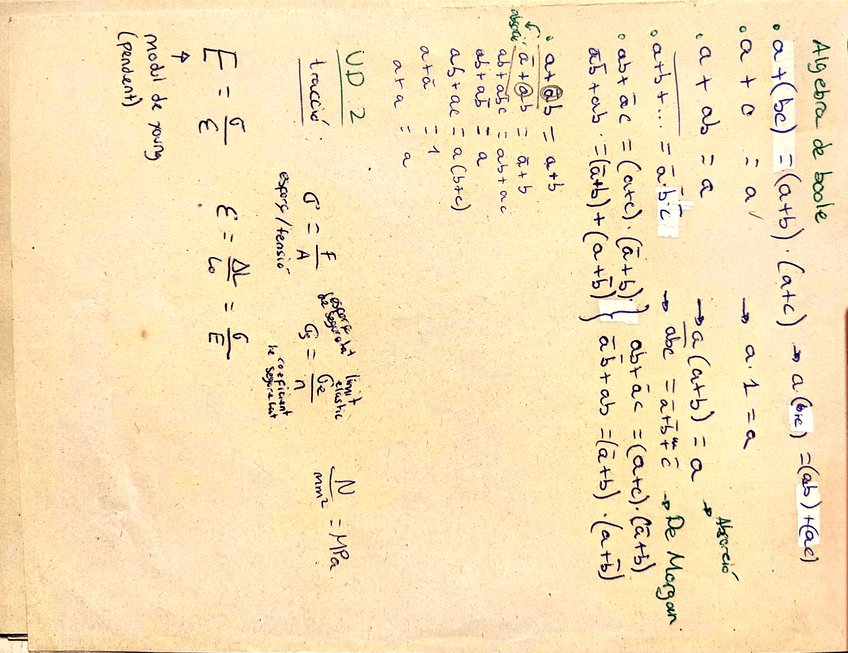 Algebra de boole
• a+(bc) = (a+b)·(a+c) → a(b+c) = (ab)+(ac)
• a + 0 = a → a·1 = a
• a + ab = a → a(a+b) = a → Absorció
• \overline{a+b+...} = a̅·b̅·c̅ → \overline{abc} = a̅+b̅+c̅ → De Morgan
• ab + a̅c = (a+c)·(a̅+b) } ab+a̅c = (a+c)·(a̅+b)
a̅b+ab = (a̅+b)+(a+b̅) } a̅b+ab = (a̅+b)·(a+b̅)
• a+a̅b = a+b
a̅+ab = a̅+b
ab+a̅bc = ab+ac
ab+ab̅ = a
ab+ac = a(b+c)
a+a̅ = 1
a+a = a
UD.2
tracció:
σ = F/A
esforç/tensió
σs = σe/n
límit elàstic
coeficient de seguretat
N/mm² = MPa
E = σ/ε
ε = ΔL/L₀ = σ/E
modul de young
(pendent)